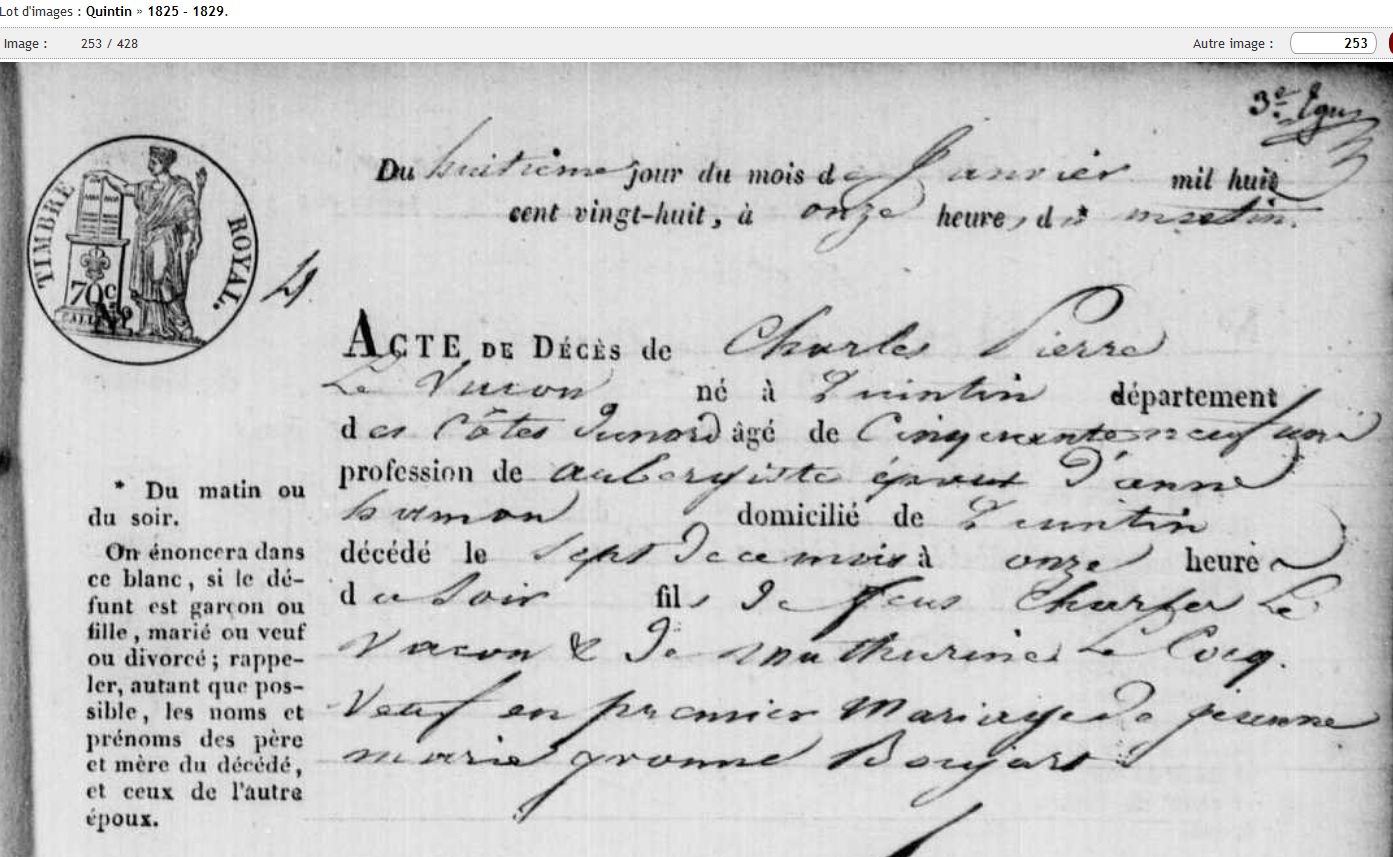 Lot d'images : Quintin » 1825 - 1829.
Image : 253 / 428
Autre image : 253
3e
TIMBRE ROYAL.
70c
Du huitième jour du mois de Janvier mil huit
cent vingt-huit, à onze heures du * matin.
4.
ACTE DE DÉCÈS de Charles Pierre
Le Vacon né à Quintin département
des Côtes du nord âgé de Cinquante neuf ans
profession de aubergiste époux d'anne
hamon domicilié de Quintin
décédé le sept de ce mois à onze heures
du Soir fils de feus Charles Le
Vacon & de mathurine Le Cocq.
Veuf en premier Mariage de
marie yvonne
* Du matin ou
du soir.
On énoncera dans
ce blanc, si le dé-
funt est garçon ou
fille, marié ou veuf
ou divorcé ; rappe-
ler, autant que pos-
sible, les noms et
prénoms des père
et mère du décédé,
et ceux de l'autre
époux.